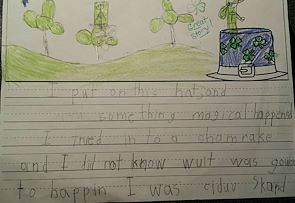 Great
story!
I put on this hat, and
something magical happened
I trned in to a shamrake
and I did not know wult was gouing
to happin I was ciduv skard